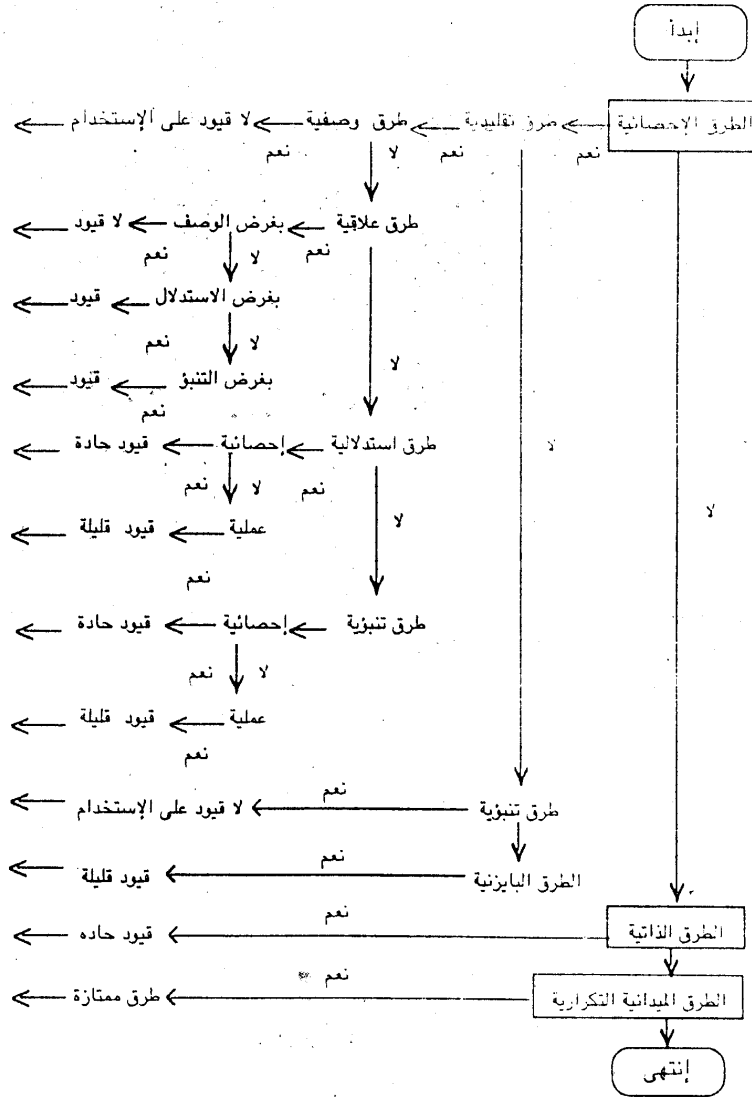 إبدأ
الطرق الإحصائية طرق تقليدية طرق وصفية لا قيود على الإستخدام
نعم نعم نعم
لا
طرق علاقية بغرض الوصف لا قيود
نعم نعم
لا
بغرض الاستدلال قيود
نعم
لا
لا
بغرض التنبؤ قيود
نعم
طرق استدلالية إحصائية قيود حادة
لا
نعم نعم
لا
لا
لا
عملية قيود قليلة
نعم
طرق تنبؤية إحصائية قيود حادة
لا نعم
عملية قيود قليلة
نعم
نعم
طرق تنبؤية لا قيود على الإستخدام
نعم
الطرق البايزنية قيود قليلة
نعم
الطرق الذاتية قيود حاده
نعم
الطرق الميدانية التكرارية طرق ممتازة
إنتهى